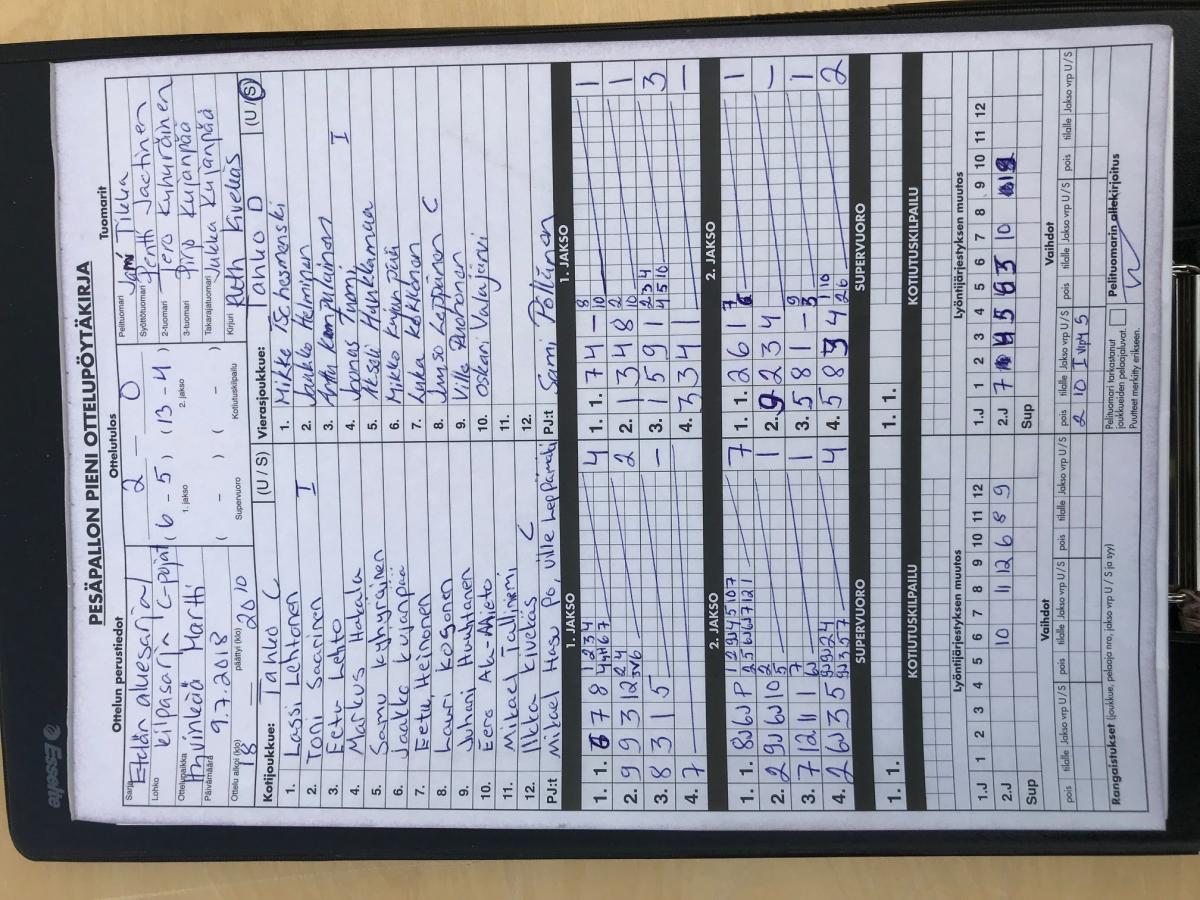 Esselte
PESÄPALLON PIENI OTTELUPÖYTÄKIRJA
Ottelun perustiedot
Sarja Etelän aluesarja
Lohko kilpasarja C-pojat
Ottelupaikka Hyvinkää Martti
Päivämäärä 9.7.2018
Ottelu alkoi (klo) 18 päättyi (klo) 2010
Ottelutulos
2 — 0
( 6 - 5 ) ( 13 - 4 )
1. jakso 2. jakso
( - ) ( - )
Supervuoro Kotiutuskilpailu
Tuomarit
Pelituomari Jami Tikka
Syöttötuomari Pentti Jactinen
2-tuomari Tero Kuhuräinen
3-tuomari Pirjo Kujanpää
Takarajatuomari Jukka Kujanpää
Kirjuri Ruth Kivekäs
Kotijoukkue: Tahko C (U / S)
1. Lassi Lehtonen
2. Toni Saarinen I
3. Eetu Lehto
4. Markus Hakala
5. Samu Kyhyräinen
6. Jaakko Kujanpää
7. Eetu Heinonen
8. Lauri Kosonen
9. Juhani Huuhtanen
10. Eero Ala-Mieto
11. Mikael Talliniemi
12. Ilkka Kivekäs C
PJ:t Mikael Hasu Po, Ville Leppämäki
Vierasjoukkue: Tahko D (U / S)
1. Mikke Tschessmenski
2. Jaukko Helminen
3. Arttu Kemppainen
4. Joonas Tuomi I
5. Akseli Hunklamaa
6. Mikko Kujanpää
7. Luka Rekkonen
8. Jimso Leppänen C
9. Ville Ruohonen
10. Oskari Valkjärvi
11.
12.
PJ:t Sami Pöllänen
1. JAKSO
1. 1. 6 7 8 4
2. 9 3 12 2
3. 8 3 1 5 –
4. 7
1. JAKSO
1. 1. 1 7 4 – 8 10 1
2. 1 3 4 8 2 10 1
3. 1 5 9 1 2 3 4 4 5 10 3
4. 3 4 1 –
2. JAKSO
1. 1. 8J 6J P 7
2. 2 9J 6J 10 2 5 1
3. 7 12 11 1 7 1
4. 2 6J 3 5 4
2. JAKSO
1. 1. 1 2 6 1 7 1
2. 9 2 3 4 –
3. 5 8 1 – 9 3 1
4. 5 8 3 4 2
SUPERVUORO
1. 1.
SUPERVUORO
1. 1.
KOTIUTUSKILPAILU
KOTIUTUSKILPAILU
Lyöntijärjestyksen muutos
1.J 1 2 3 4 5 6 7 8 9 10 11 12
2.J 10 11 12 6 8 9
Sup
Lyöntijärjestyksen muutos
1.J 1 2 3 4 5 6 7 8 9 10 11 12
2.J 7
Sup
Vaihdot
pois tilalle Jakso vrp U / S pois tilalle Jakso vrp U / S pois tilalle Jakso vrp U / S
Vaihdot
pois tilalle Jakso vrp U / S pois tilalle Jakso vrp U / S pois tilalle Jakso vrp U / S
2 10 I
Rangaistukset (joukkue, pelaaja nro, jakso vrp U / S ja syy)
Pelituomari tarkastanut joukkueiden pelaajaluvat.
Puutteet merkitty erikseen.
Pelituomarin allekirjoitus